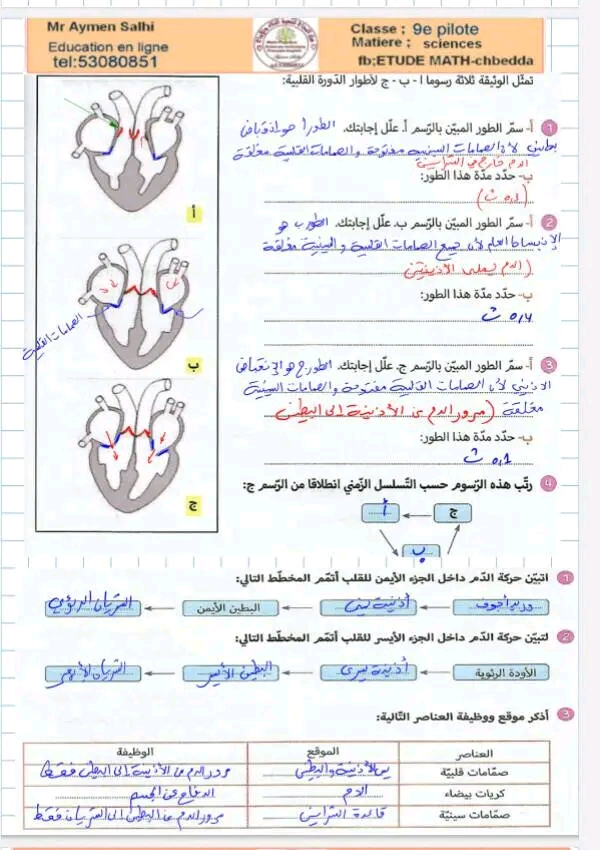 Mr Aymen Salhi
Education en ligne
tel:53080851
Classe ; 9e pilote
Matiere ; sciences
fb;ETUDE MATH-chbedda
تمثّل الوثيقة ثلاثة رسوما أ - ب - ج لأطوار الدّورة القلبية:
1 أ- سمّ الطور المبيّن بالرّسم أ. علّل إجابتك. الطور أ هو انقباض
بطيني لأن الصمامات السينية مفتوحة والصمامات القلبية مغلقة
الدم خارج من الشرايين
ب- حدّد مدّة هذا الطور:
(0,3 ث)
أ
2 أ- سمّ الطور المبيّن بالرّسم ب. علّل إجابتك. الطور ب هو
الإنبساط العام لأن جميع الصمامات القلبية والسينية مغلقة
(الدم يملى الأذينتين
ب- حدّد مدّة هذا الطور:
0,4 ث
الصمامات القلبية
ب
3 أ- سمّ الطور المبيّن بالرّسم ج. علّل إجابتك. الطور ج هو الإنقباض
الاذيني لأن الصمامات القلبية مفتوحة والصمامات السينية
مغلقة (مرور الدم من الأذينة إلى البطين)
ب- حدّد مدّة هذا الطور:
0,1 ث
ج
4 رتّب هذه الرّسوم حسب التّسلسل الزّمني انطلاقا من الرّسم ج:
ج أ
ب
1 اتبيّن حركة الدّم داخل الجزء الأيمن للقلب أتمّم المخطّط التالي:
وريد أجوف أذينة يمنى البطين الأيمن الشريان الرئوي
2 لتبيّن حركة الدّم داخل الجزء الأيسر للقلب أتمّم المخطّط التالي:
الأوردة الرئوية أذينة يسرى البطين الأيسر الشريان الأبهر
3 أذكر موقع ووظيفة العناصر التّالية:
العناصر الموقع الوظيفة
صمّامات قلبيّة بين الأذينة والبطين مرور الدم من الأذينة إلى البطين فقط
كريات بيضاء الدم الدفاع عن الجسم
صمّامات سينيّة قاعدة الشرايين مرور الدم من البطين إلى الشريان فقط